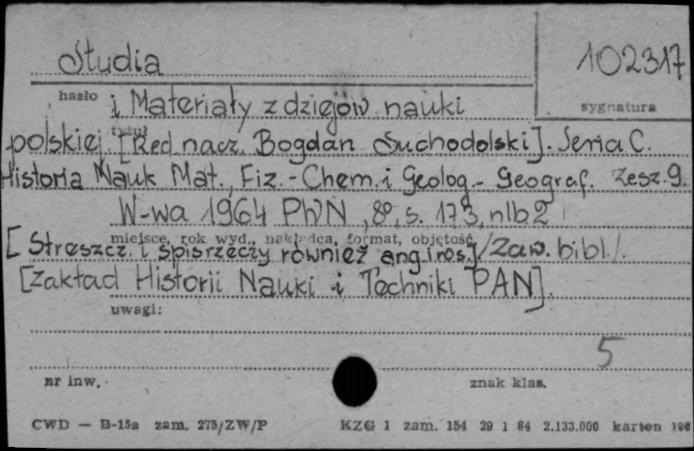 Studia
102317
hasło
sygnatura
i Materiały z dziejów nauki
tytuł
polskiej. [Red. nacz. Bogdan Suchodolski]. Seria C.
Historia Nauk Mat., Fiz.-Chem. i Geolog.- Geograf. zesz. 9.
W-wa 1964 PWN, 8°, s. 173, nlb 2
miejsce, rok wyd., nakładca, format, objętość
[Streszcz. i spis rzeczy również ang. i ros.] /Zaw. bibl./.
[Zakład Historii Nauki i Techniki PAN].
uwagi:
5
nr inw.
znak klas.
CWD — B-15a zam. 275/ZW/P
KZG 1 zam. 154 29 1 64 2.133.000 karten